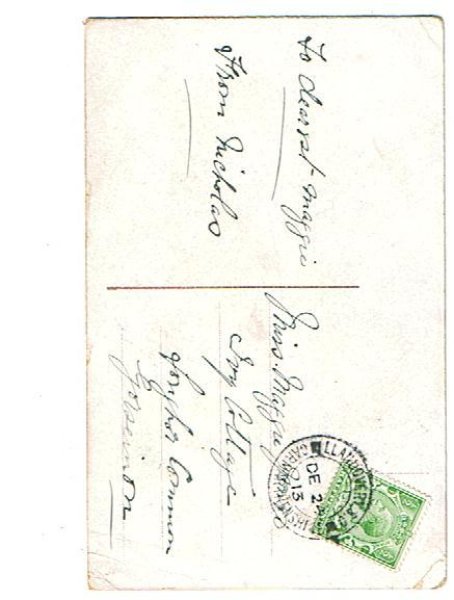 To dearest Maggie
From Nicholas
Miss. Maggie
Ivy Cottage
Loughor Common
Gorseinon
LLANDOVERY S.O.
DE 24
13
CARMARTHENSHIRE